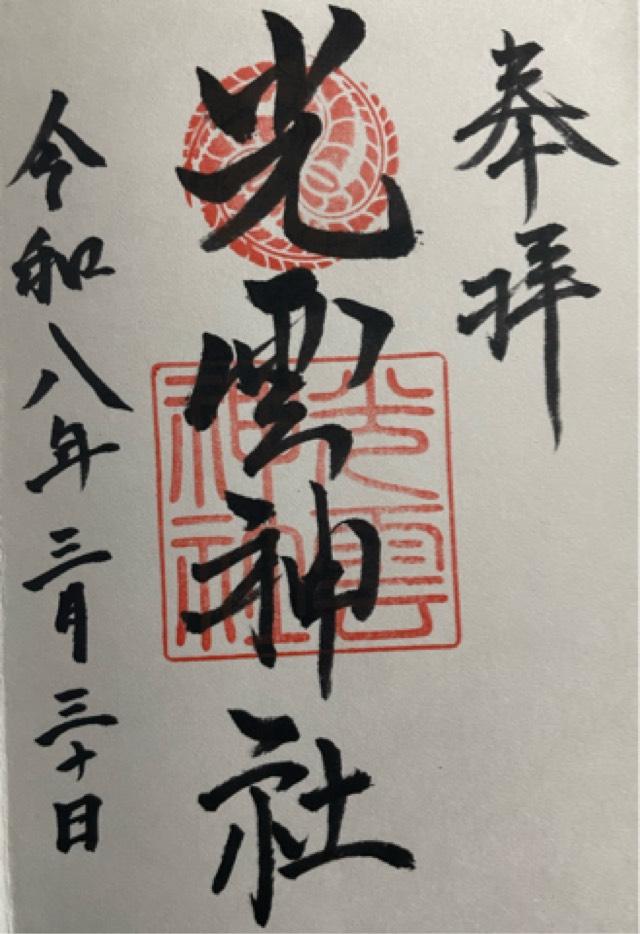 奉拝
光雲神社
光雲神社
令和八年三月三十日